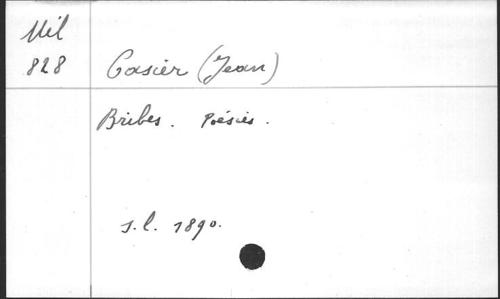 Mil
828
Casier (Jean)
Bribes. Poésies.
s.l. 1890.